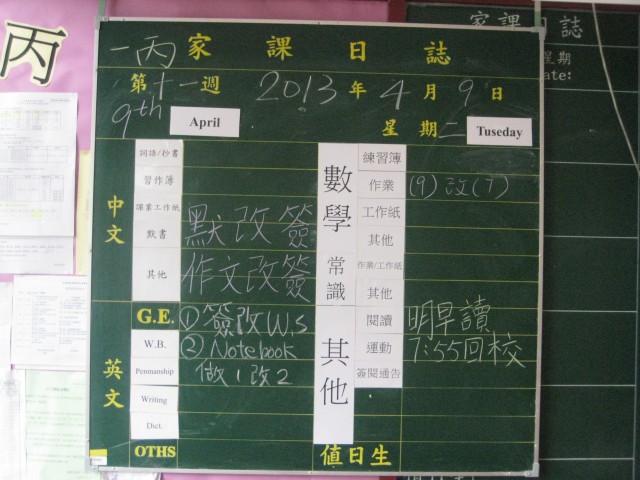 丙
一丙 家課日誌
第十一週 2013年4月9日
9th April 星期二 Tuseday
中文
詞語/抄書
習作簿
課業工作紙
默書 默改簽
其他 作文改簽
英文
G.E. ① 簽改W.S
W.B. ② Notebook
Penmanship 做1改2
Writing
Dict.
OTHS
數學
練習簿
作業 (9)改(7)
工作紙
其他
常識
作業/工作紙
其他
其他
閱讀 明早讀
運動 7:55回校
簽閱通告
值日生
家課日誌
星期
ate: